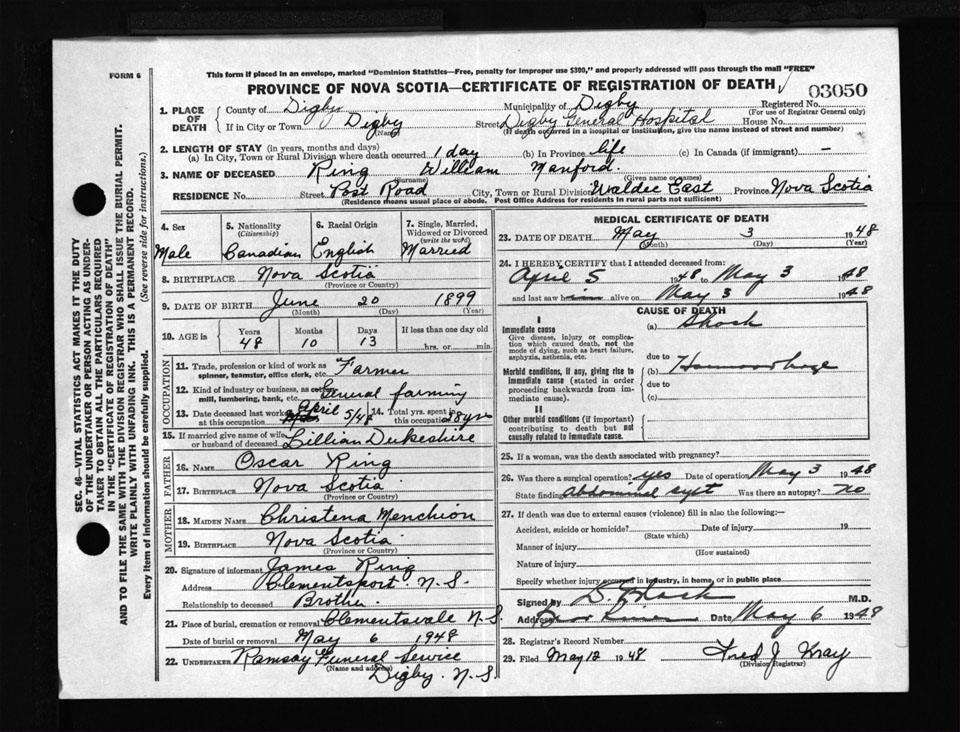 FORM 6
This form if placed in an envelope, marked "Dominion Statistics—Free, penalty for improper use $300," and properly addressed will pass through the mail "FREE"
PROVINCE OF NOVA SCOTIA—CERTIFICATE OF REGISTRATION OF DEATH
03050
1. PLACE OF DEATH
County of Digby Municipality of Digby Registered No.
(For use of Registrar General only)
If in City or Town Digby Street Digby General Hospital House No.
(Name) (If death occurred in a hospital or institution, give the name instead of street and number)
2. LENGTH OF STAY (in years, months and days)
(a) In City, Town or Rural Division where death occurred 1 day (b) In Province life (c) In Canada (if immigrant) —
3. NAME OF DECEASED Ring William Manford
(Surname) (Given name or names)
RESIDENCE No. Street Post Road City, Town or Rural Division Waldec East Province Nova Scotia
(Residence means usual place of abode. Post Office Address for residents in rural parts not sufficient)
SEC. 46—VITAL STATISTICS ACT MAKES IT THE DUTY
OF THE UNDERTAKER OR PERSON ACTING AS UNDER-
TAKER TO OBTAIN ALL THE PARTICULARS REQUIRED
IN THE "CERTIFICATE OF REGISTRATION OF DEATH"
AND TO FILE THE SAME WITH THE DIVISION REGISTRAR WHO SHALL ISSUE THE BURIAL PERMIT.
WRITE PLAINLY WITH UNFADING INK. THIS IS A PERMANENT RECORD.
Every item of information should be carefully supplied. (See reverse side for instructions.)
4. Sex
Male
5. Nationality
(Citizenship)
Canadian
6. Racial Origin
English
7. Single, Married, Widowed or Divorced
(write the word)
Married
8. BIRTHPLACE Nova Scotia
(Province or Country)
9. DATE OF BIRTH June 20 1899
(Month) (Day) (Year)
10. AGE in Years Months Days If less than one day old
48 10 13 hrs. or min.
OCCUPATION
11. Trade, profession or kind of work as spinner, teamster, office clerk, etc. Farmer
12. Kind of industry or business, as mill, lumbering, bank, etc. General farming
13. Date deceased last worked at this occupation April 5/48 14. Total yrs. spent in this occupation 28 yrs
15. If married give name of wife or husband of deceased Lillian Dukeshire
FATHER
16. NAME Oscar Ring
17. BIRTHPLACE Nova Scotia
MOTHER
18. MAIDEN NAME Christena Menchion
19. BIRTHPLACE Nova Scotia
(Province or Country)
20. Signature of informant James Ring
Address Clementsport N.S.
Relationship to deceased Brother
21. Place of burial, cremation or removal Clementsvale N.S.
Date of burial or removal May 6 1948
22. UNDERTAKER Ramsay Funeral Service
(Name and address) Digby. N.S.
MEDICAL CERTIFICATE OF DEATH
23. DATE OF DEATH May 3 1948
(Month) (Day) (Year)
24. I HEREBY CERTIFY that I attended deceased from:
April 5 1948 to May 3 1948
and last saw him alive on May 3 1948
CAUSE OF DEATH
I
Immediate cause
Give disease, injury or complication which caused death, not the mode of dying, such as heart failure, asphyxia, asthenia, etc.
(a) Shock
due to
Morbid conditions, if any, giving rise to immediate cause (stated in order proceeding backwards from immediate cause).
(b) Haemorrhage
due to
(c)
II
Other morbid conditions (if important) contributing to death but not causally related to immediate cause.
25. If a woman, was the death associated with pregnancy?
26. Was there a surgical operation? yes Date of operation May 3 1948
State finding abdominal cyst Was there an autopsy? no
27. If death was due to external causes (violence) fill in also the following:—
Accident, suicide or homicide? Date of injury 19
(State which)
Manner of injury
(How sustained)
Nature of injury
Specify whether injury occurred in industry, in home, or in public place
Signed by M.D.
Address Bear River Date May 6 1948
28. Registrar's Record Number
29. Filed May 12 1948 Fred J Wray
(Division Registrar)